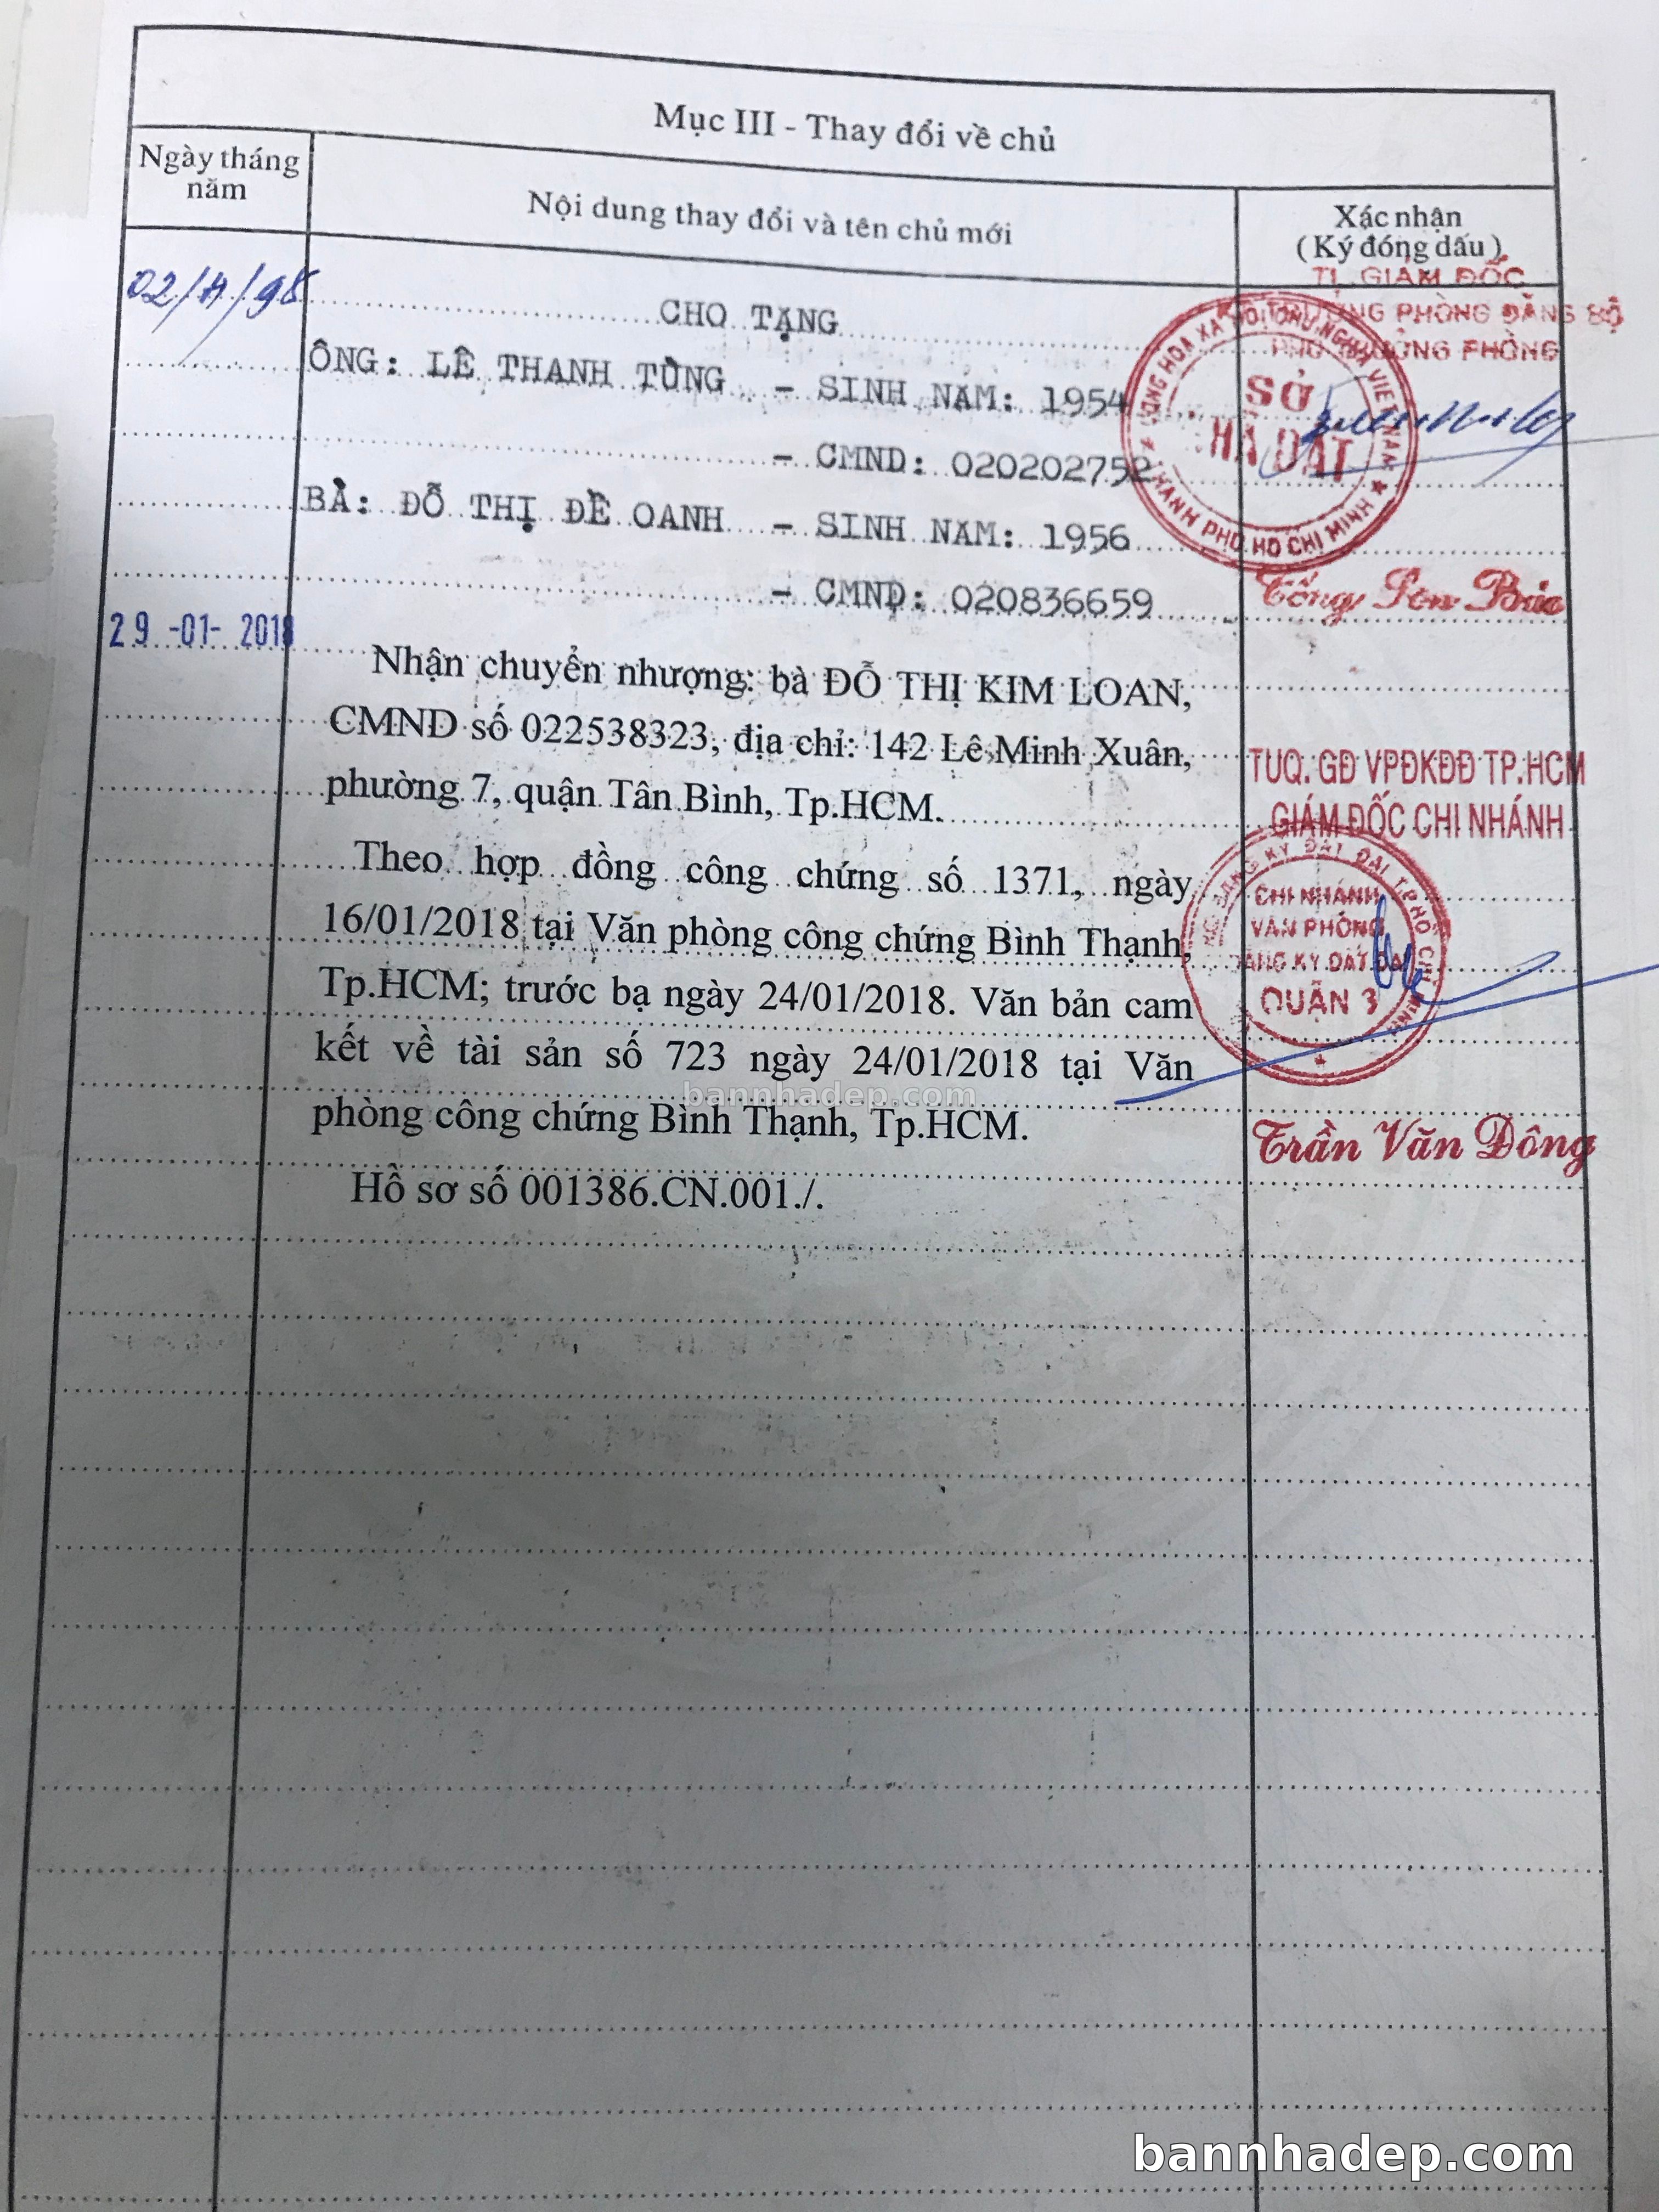 Mục III - Thay đổi về chủ
Ngày tháng
năm
Nội dung thay đổi và tên chủ mới
Xác nhận
( Ký đóng dấu )
TL. GIÁM ĐỐC
PHÒNG ĐĂNG BỘ
PHÓ TRƯỞNG PHÒNG
02/11/98
CHO TẶNG
ÔNG: LÊ THANH TÙNG - SINH NĂM: 1954
- CMND: 020202752
BÀ: ĐỖ THỊ ĐỀ OANH - SINH NĂM: 1956
- CMND: 020836659
CỘNG HÒA XÃ HỘI CHỦ NGHĨA VIỆT NAM
SỞ
NHÀ ĐẤT
THÀNH PHỐ HỒ CHÍ MINH
Tống Sơn Bảo
29 -01- 2018
Nhận chuyển nhượng: bà ĐỖ THỊ KIM LOAN,
CMND số 022538323, địa chỉ: 142 Lê Minh Xuân,
phường 7, quận Tân Bình, Tp.HCM.
Theo hợp đồng công chứng số 1371, ngày
16/01/2018 tại Văn phòng công chứng Bình Thạnh,
Tp.HCM; trước bạ ngày 24/01/2018. Văn bản cam
kết về tài sản số 723 ngày 24/01/2018 tại Văn
phòng công chứng Bình Thạnh, Tp.HCM.
Hồ sơ số 001386.CN.001./.
TUQ. GĐ VPĐKĐĐ TP.HCM
GIÁM ĐỐC CHI NHÁNH
ĐĂNG KÝ ĐẤT ĐAI T.PHỐ CHÍ MINH
CHI NHÁNH
VĂN PHÒNG
ĐĂNG KÝ ĐẤT ĐAI
QUẬN 3
Trần Văn Đông
bannhadep.com
bannhadep.com